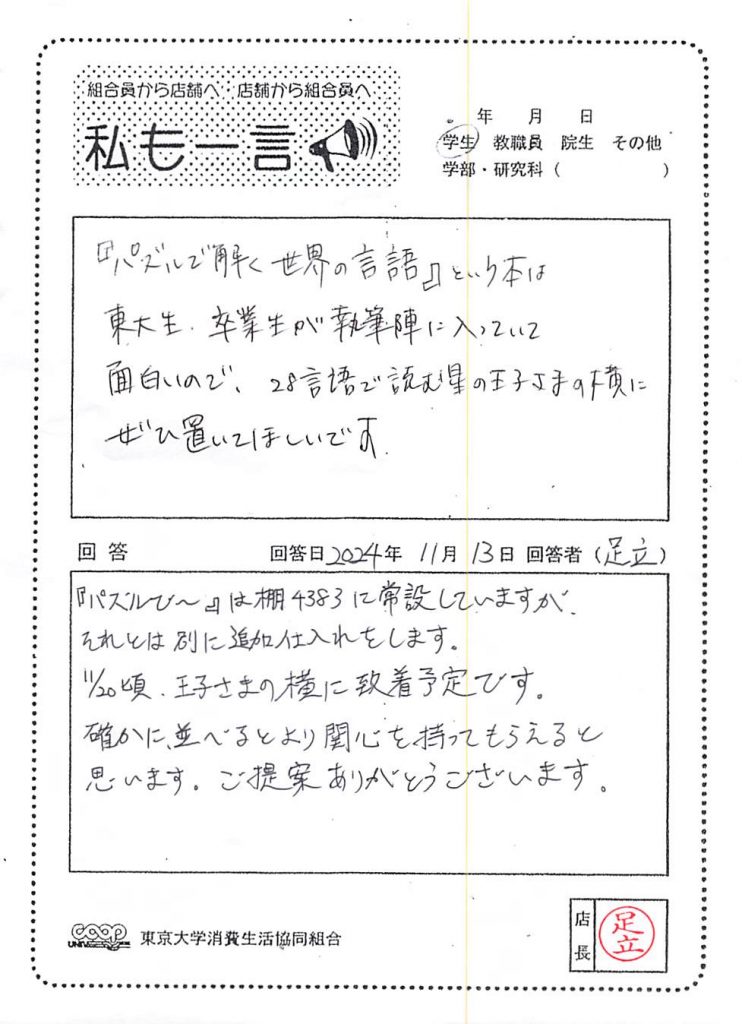 組合員から店舗へ 店舗から組合員へ
私も一言
年 月 日
学生 教職員 院生 その他
学部・研究科（ ）
『パズルで解く世界の言語』という本は
東大生、卒業生が執筆陣に入っていて
面白いので、28言語で読む星の王子さまの横に
ぜひ置いてほしいです
回答 回答日2024年 11月 13日 回答者（足立）
『パズルで〜』は棚4383に常設していますが、
それとは別に追加仕入れをします。
11/20頃、王子さまの横に到着予定です。
確かに、並べるとより関心を持ってもらえると
思います。ご提案ありがとうございます。
coop
UNIV
東京大学消費生活協同組合
店長
足立